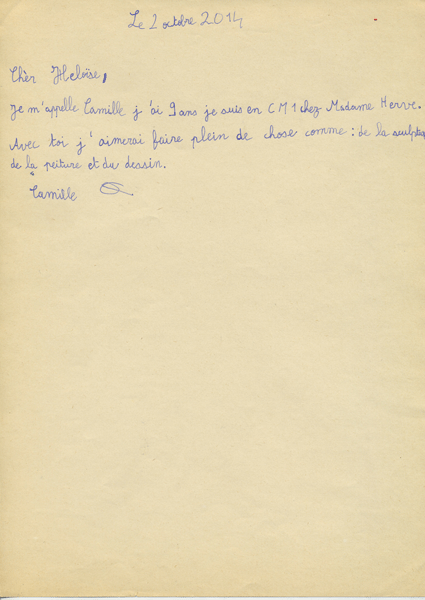 Le 2 octobre 2014
Chèr Heloïse,
Je m'appelle Camille j'ai 9 ans je suis en CM1 chez Madame Herve.
Avec toi j'aimerai faire plein de chose comme : de la sculpture
de la peiture et du dessin.
Camille